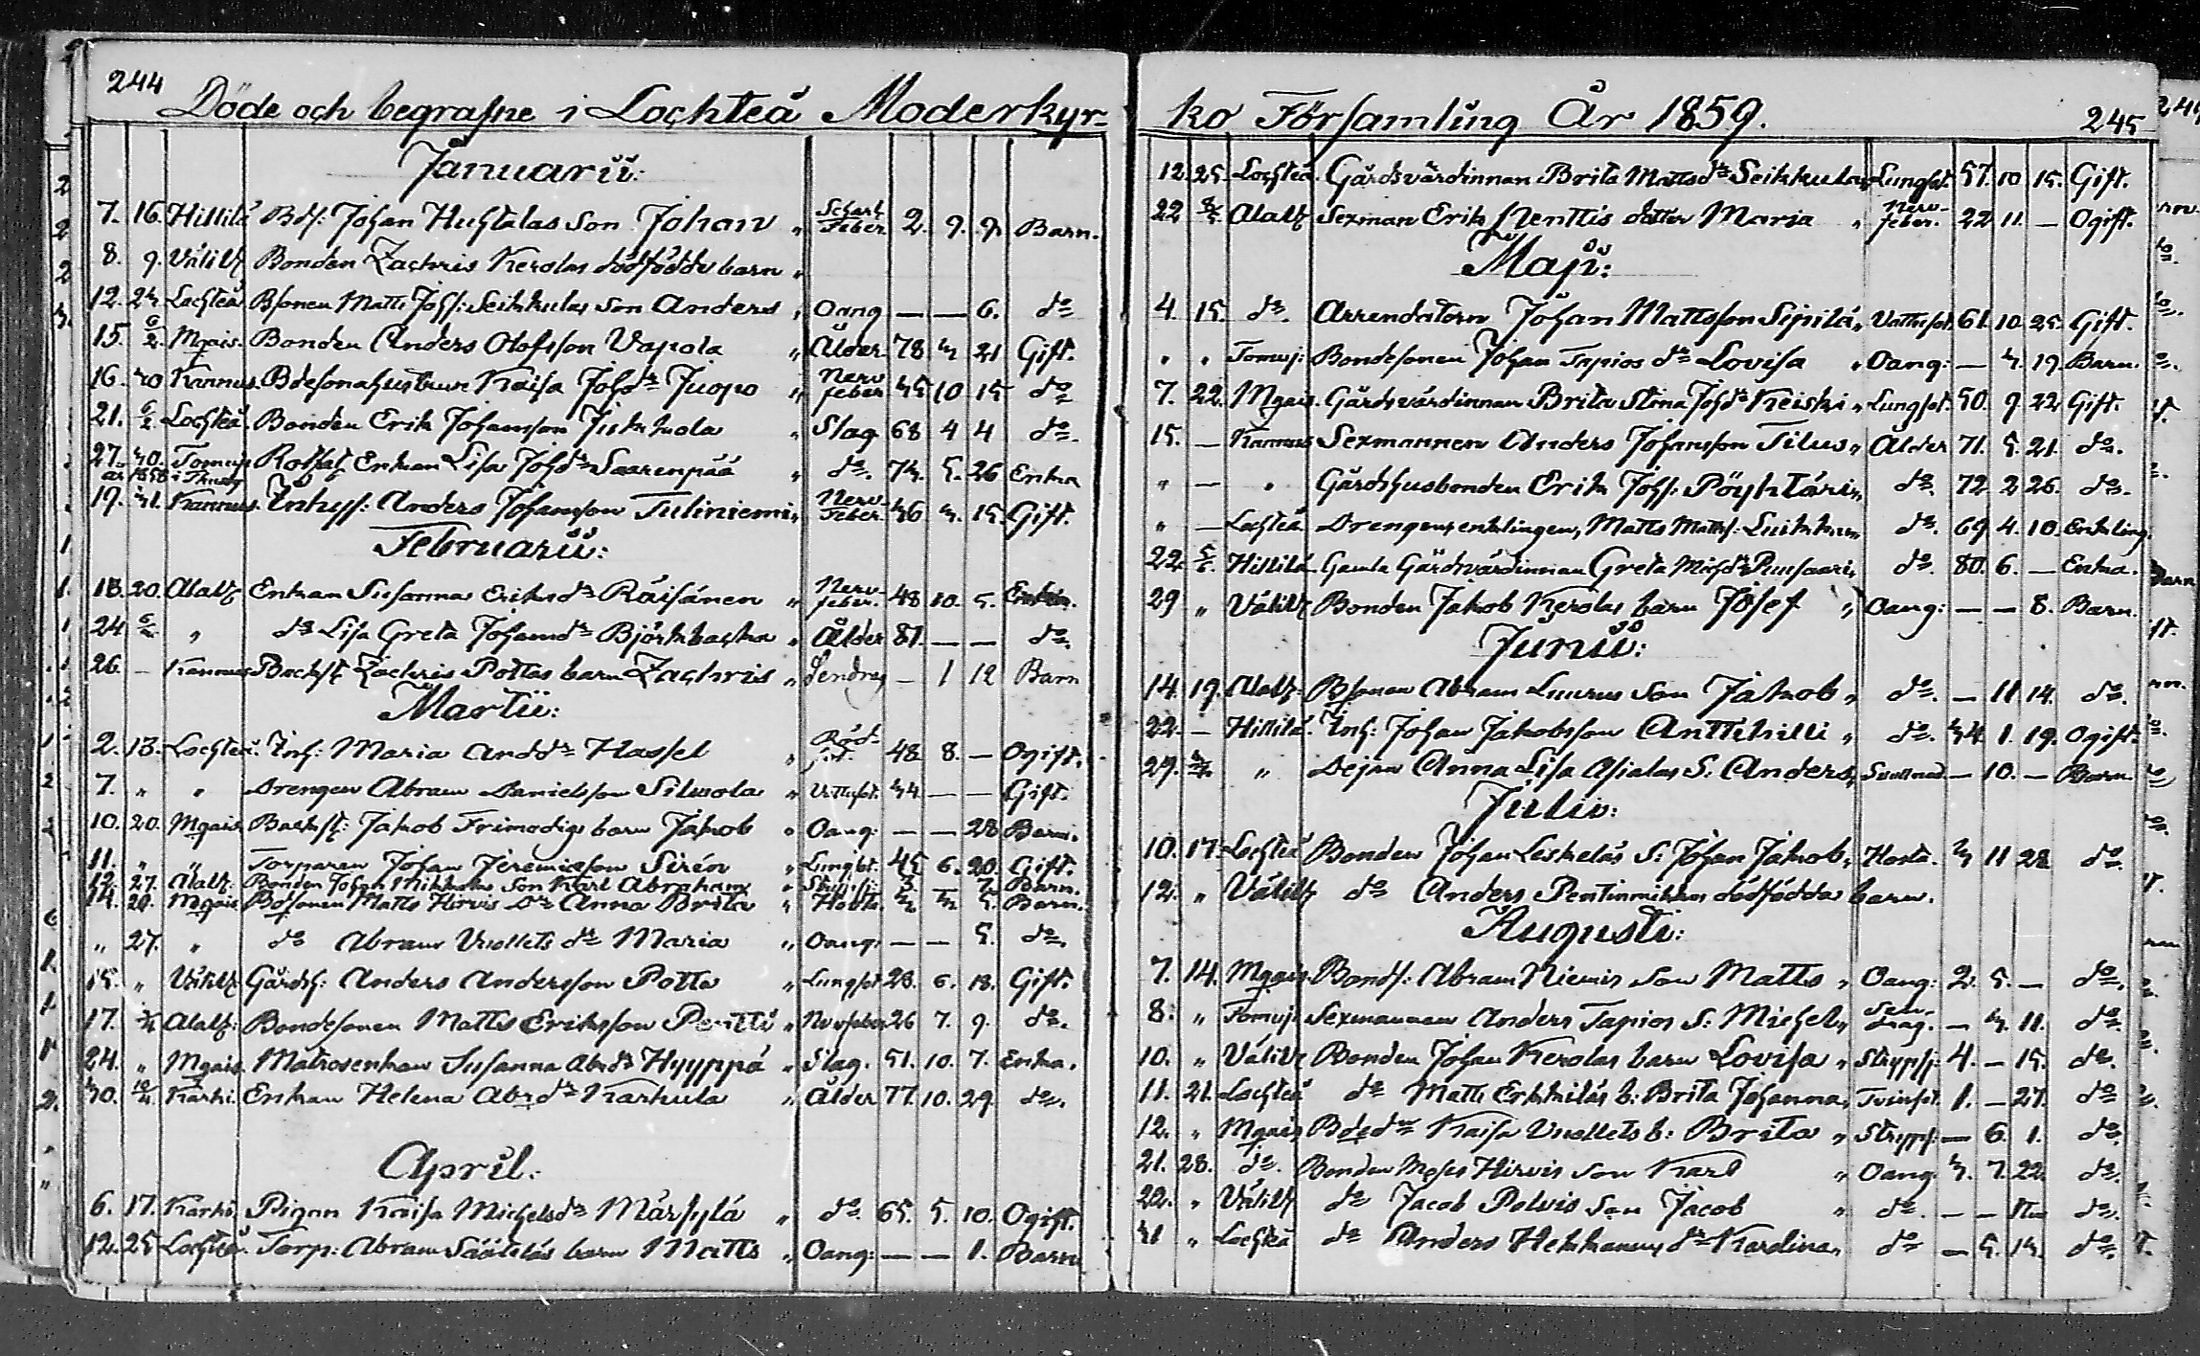 244
Döde och begrafne i Lochteå Moderkyr-
Januarii:
7. 16. Hillilä Bds. Johan Huhtalas Son Johan " Scharl. Feber 2. 9. 9. Barn.
8. 9. Välikz Bonden Zachris Kerolas dödfödda barn "
12. 24 Lochteå Bsonen Matts Johs: Seikkulas Son Anders " Oang — — 6. do
15. 6/2. Mgais. Bonden Anders Olofsson Vapola " Ålder 78 4 21 Gift.
16. 30 Kannus. Bdesonahustrun Kaisa Johsdr Juopo " Nerv feber 35 10 15 do
21. 6/2. Lochteå. Bonden Erik Johansson " Slag 68 4 4 do.
27. 30. Tomuj: Rothat: Enkan Lisa Johsdr Saarenpää " do. 74. 5. 26 Enka
år 1858 i
19. 31. Kannus. Inhyss: Anders Johansson Tuliniemi " Nerv Feber 36 4. 15. Gift.
Februarii:
18. 20. Alatz Enkan Susanna Eriksdr Räisänen " Nerv feber. 48 10. 5. Enka.
24 " do Lisa Greta Johansdr Björkbacka " Ålder 81. — — do.
26. — Kannus Backst Zachris Pottas barn Zachris " 1 12 Barn
Martii:
2. 13. Lochteå. Inh: Maria Andsdr Hassel " Röd- 48. 8. — Ogift.
7. " " Drengen Abram Danielsson Silwola " Vattusot. 34 — — Gift.
10. 20. Mgais Backst: Jakob Frimodigs barn Jakob " Oang: — — 28 Barn.
11. " " Torparen Johan Jeremiasson Sirén " Lungsot. 45 6. 20. Gift.
12. 27. Alatz: Bonden Johan Mikkolas Son Karl Abraham " Strypsj: 3. — 7. Barn.
14. 20. Mgais Bdsonen Matts Hirvis Dr Anna Brita " Hosta 5. Barn.
" 27. " do Abram Vuollets dr Maria " Oang: — — 5. do.
15. " Välikz Gårdsh: Anders Andersson Potta " Lungsot 28. 6. 18. Gift.
17. Alatz: Bondesonen Matts Eriksson Pentti " Nervfeber 26 7. 9. do.
24. " Mgais. Matrosenkan Susanna Abrdr Hyyppä " Slag. 51. 10. 7. Enka.
30. 10/4. Karhi. Enkan Helena Abrdr Karhula " Ålder 77. 10. 29. do.
April:
6. 17. Karhi. Pigan Kaisa Michelsdr Märsylä " do. 65. 5. 10. Ogift.
12. 25 Lochteå. Torp: Abram Säätiläs barn Matts " Oang: — — 1. Barn
ko Församling År 1859.
245
12. 25. Lochteå. Gårdsvärdinnan Brita Mattsdr Seikkula Lungsot. 57. 10 15. Gift.
22 8/5 Alatz Sexman Erik Henttis dotter Maria " Nerv- feber. 22 11. — Ogift.
Maji:
4. 15. do. Arrendatorn Johan Mattsson Sipilä " Vattusot. 61. 10. 25. Gift.
" " Tomuj: Bondesonen Johan Tapios dr Lovisa " Oang: — 4. 19. Barn.
7. 22. Mgais. Gårdsvärdinnan Brita Stina Johsdr Keiski " Lungsot. 50. 9 22 Gift.
15. — Kannus Sexmannen Anders Johansson Tilus " Ålder 71. 5. 21. do.
" — " Gårdshusbonden Erik Johs: Pöyhtäri " do. 72 2 26. do.
" — Lochteå Drengen, enklingen, Matts Matts: Luikku " do. 69 4. 10. Enkling.
22 5/6. Hillilä. Gamla Gårdsvärdinnan Greta Michsdr Ruusaari " do. 80. 6. — Enka.
29 " Välikz Bonden Jakob Kerolas barn Josef " Oang: — — 8. Barn.
Junii:
14. 19. Alatz: Bsonen Abram Luurus Son Jakob " do. — 11 14. do.
22. — Hillilä. Inh: Johan Jakobsson Anttihilli " do. 34. 1. 19. Ogift.
29. 3/7. " Dejan Anna Lisa Asialas S: Anders " — 10. — Barn
Julii:
10. 17. Lochteå Bonden Johan Leskeläs S: Johan Jakob " Hosta. 3 11 28 do.
12. " Välikz do Anders Pentinmikkos dödfödda barn.
Augusti:
7. 14. Mgais. Bonds: Abram Niemis Son Matts " Oang: 2. 5. — do.
8. " Tomuj: Sexmannen Anders Tapios S: Michel " Sendrag. — 4. 11. do.
10. " Välikz Bonden Johan Kerolas barn Lovisa " Strypsj: 4. — 15. do.
11. 21. Lochteå do Matts Erkkiläs b: Brita Johanna " Tvinsot. 1. — 27. do
12. " Mgais Bdedr Kaisa Vuollets b: Brita " Strypsj: — 6. 1. do.
21. 28. do. Bonden Moses Hirvis Son Karl " Oang 3. 7. 22. do.
22. " Välikz do Jacob Polvis Son Jacob " do. — — do.
31 " Lochteå do Anders Hekkanens dr Kardina " do — 5. 14. do.